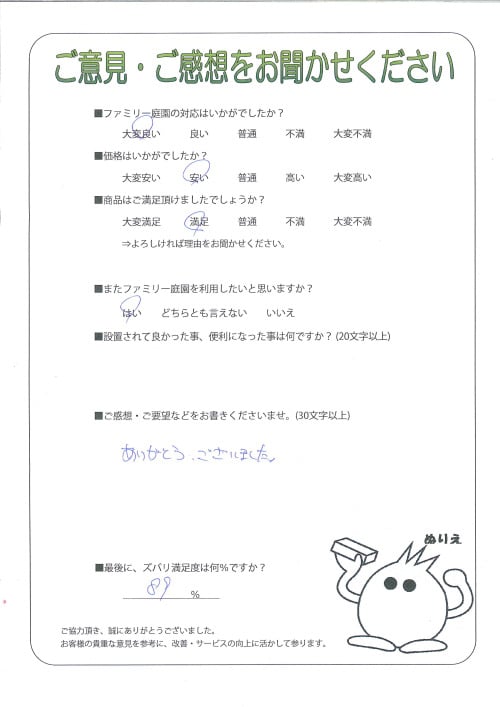 ご意見・ご感想をお聞かせください
■ファミリー庭園の対応はいかがでしたか？
大変良い　良い　普通　不満　大変不満
■価格はいかがでしたか？
大変安い　安い　普通　高い　大変高い
■商品はご満足頂けましたでしょうか？
大変満足　満足　普通　不満　大変不満
⇒よろしければ理由をお聞かせください。
■またファミリー庭園を利用したいと思いますか？
はい　どちらとも言えない　いいえ
■設置されて良かった事、便利になった事は何ですか？(20文字以上)
■ご感想・ご要望などをお書きくださいませ。(30文字以上)
ありがとうございました。
ぬりえ
■最後に、ズバリ満足度は何％ですか？
89％
ご協力頂き、誠にありがとうございました。
お客様の貴重な意見を参考に、改善・サービスの向上に活かして参ります。